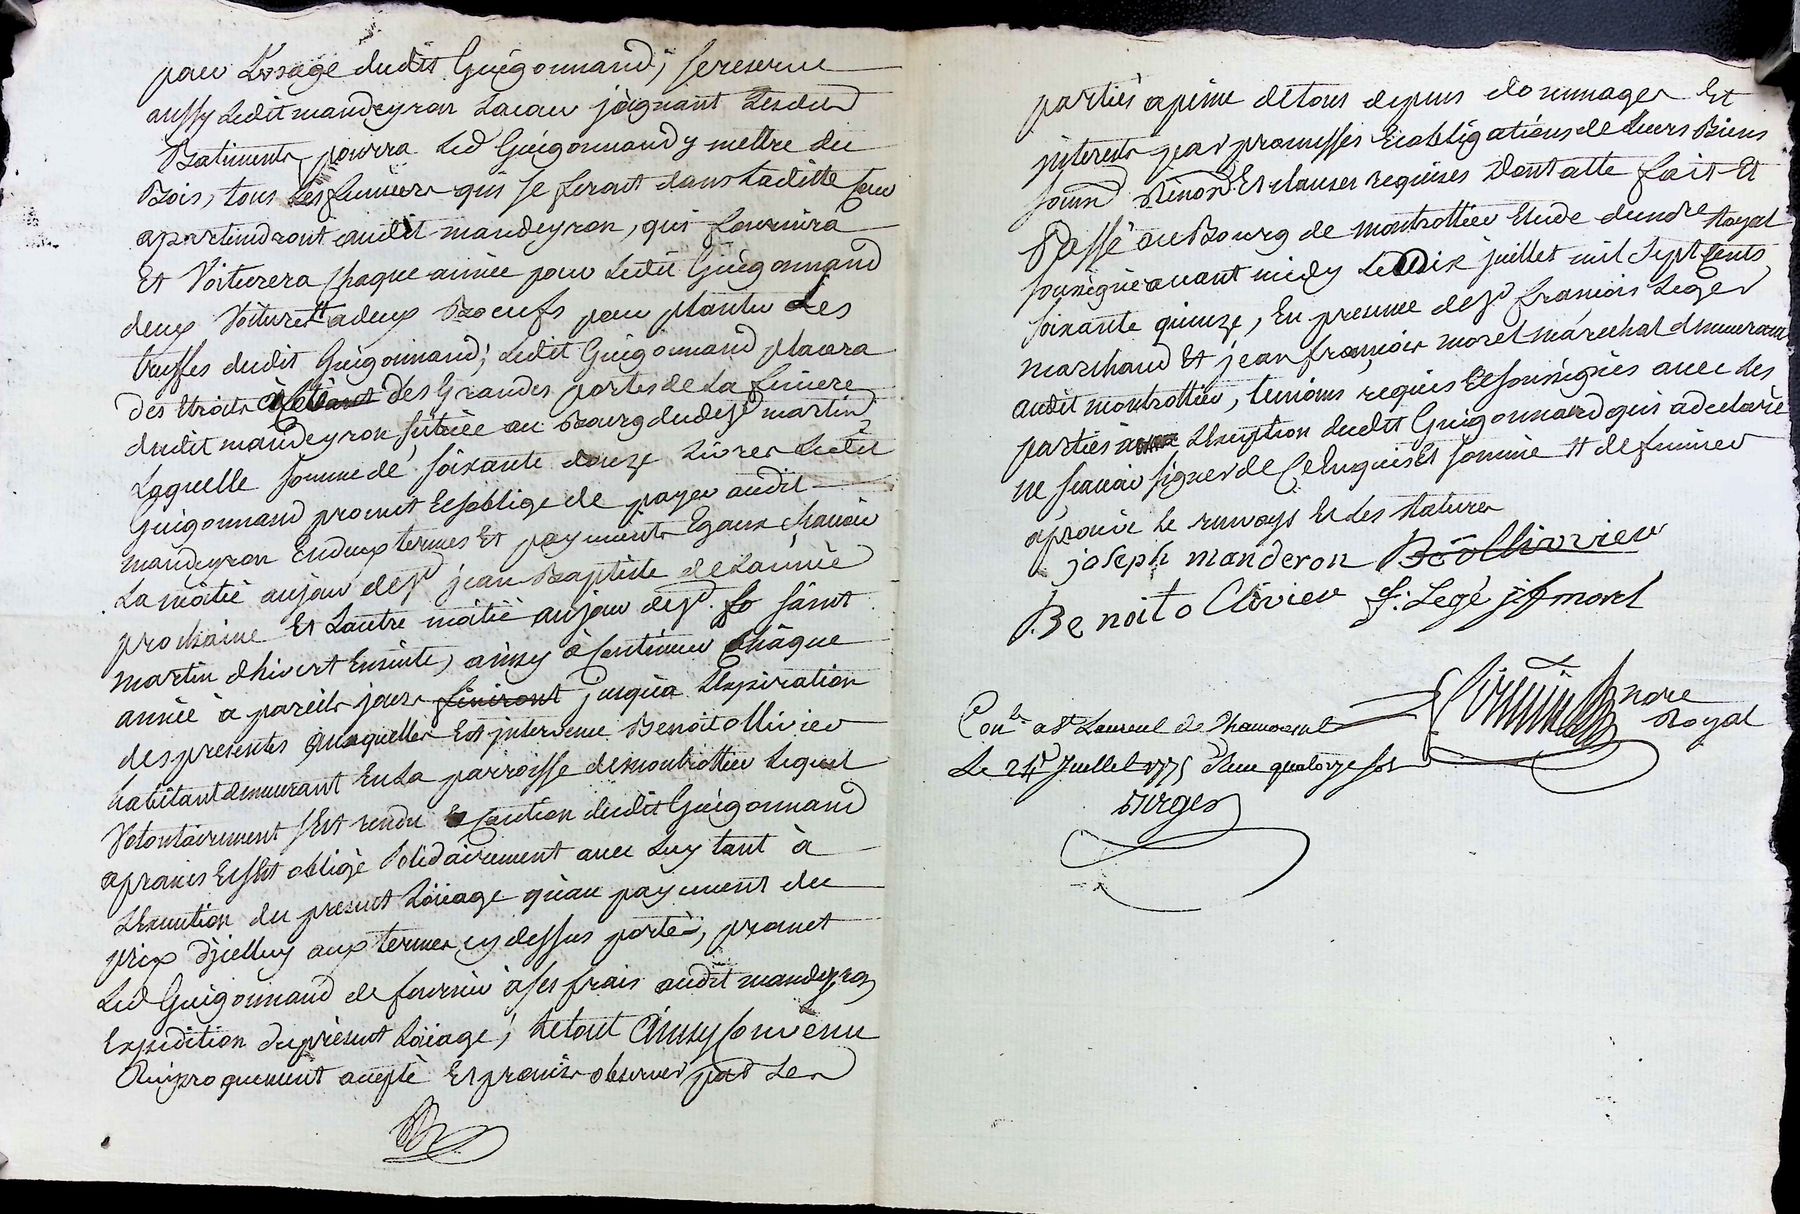 pour L'usage dudit Guigonnand; se reserve
aussy Ledit mandeyron La cour joignant Lesdits
Batiments, pourra Led Guigonnand y mettre du
Bois, tous Les fumiers qui se feront dans Laditte cour
apartiendront audit mandeyron, qui fournira
Et Voiturera chaque année pour Ledit Guigonnand
deux Voitures a deux Boeufs pour planter Les
truffes dudit Guigonnand; Ledit Guigonnand placera
des Etroits des Grandes portes de La finiere
dudit mandeyron située au Bourg dudt St martin
Laquelle somme de soixante douze Livres Ledit
Guigonnand promet Et soblige de payer audit
mandeyron En deux termes Et payments Egaux scavoir
La moitié au jour de St jean Baptiste de Lannée
prochaine Et Lautre moitié au jour de St saint
martin dhivert Ensuite, ainsy a Continuer chaque
année a pareils jours finiront jusqua Lexpiration
des presentes auxquelles Est intervenu Benoit ollivier
habitant demeurant En La parroisse de montrottier Lequel
Volontairement sest rendu Caution dudit Guigonnand
apranis Et sest obligé solidairement avec Luy tant à
Lexecution du present Loüage qu'au payement du
prix d'jcelluy aux termes cy dessus portés, promet
Led Guigonnand de fournir à ses frais audit mandeyron
Expedition du present Loüage; Le tout Ainsy convenu
Reciproquement accepté Et promis observer par Les
parties a peine de tous depens dommages Et
interests par promesses Et obligations de Leurs Biens
soum Renon Et clauses requises Dont acte fait Et
Passé au Bourg de montrottier Etude du nore Royal
soussigné avant midy Le dix juillet mil sept cents
soixante quinze, En presence de Sr francois Leger
marchand Et jean francois morel maréchal demeurant
audit montrottier, temoins requis Et soussignés avec Les
parties a Lexception dudit Guigonnand qui a declaré
ne scavoir signer de Ce Enquis Et sommé # de fumier
aprouvé Le renvoys Et Les Ratures
joseph manderon Bôollivier
Benoit o Clivier f: Legé jf morel
nore
Royal
Conle a St Laurent de Chamousset
Le 24 Juillet 1775 Reçu quatorze sols
Durges